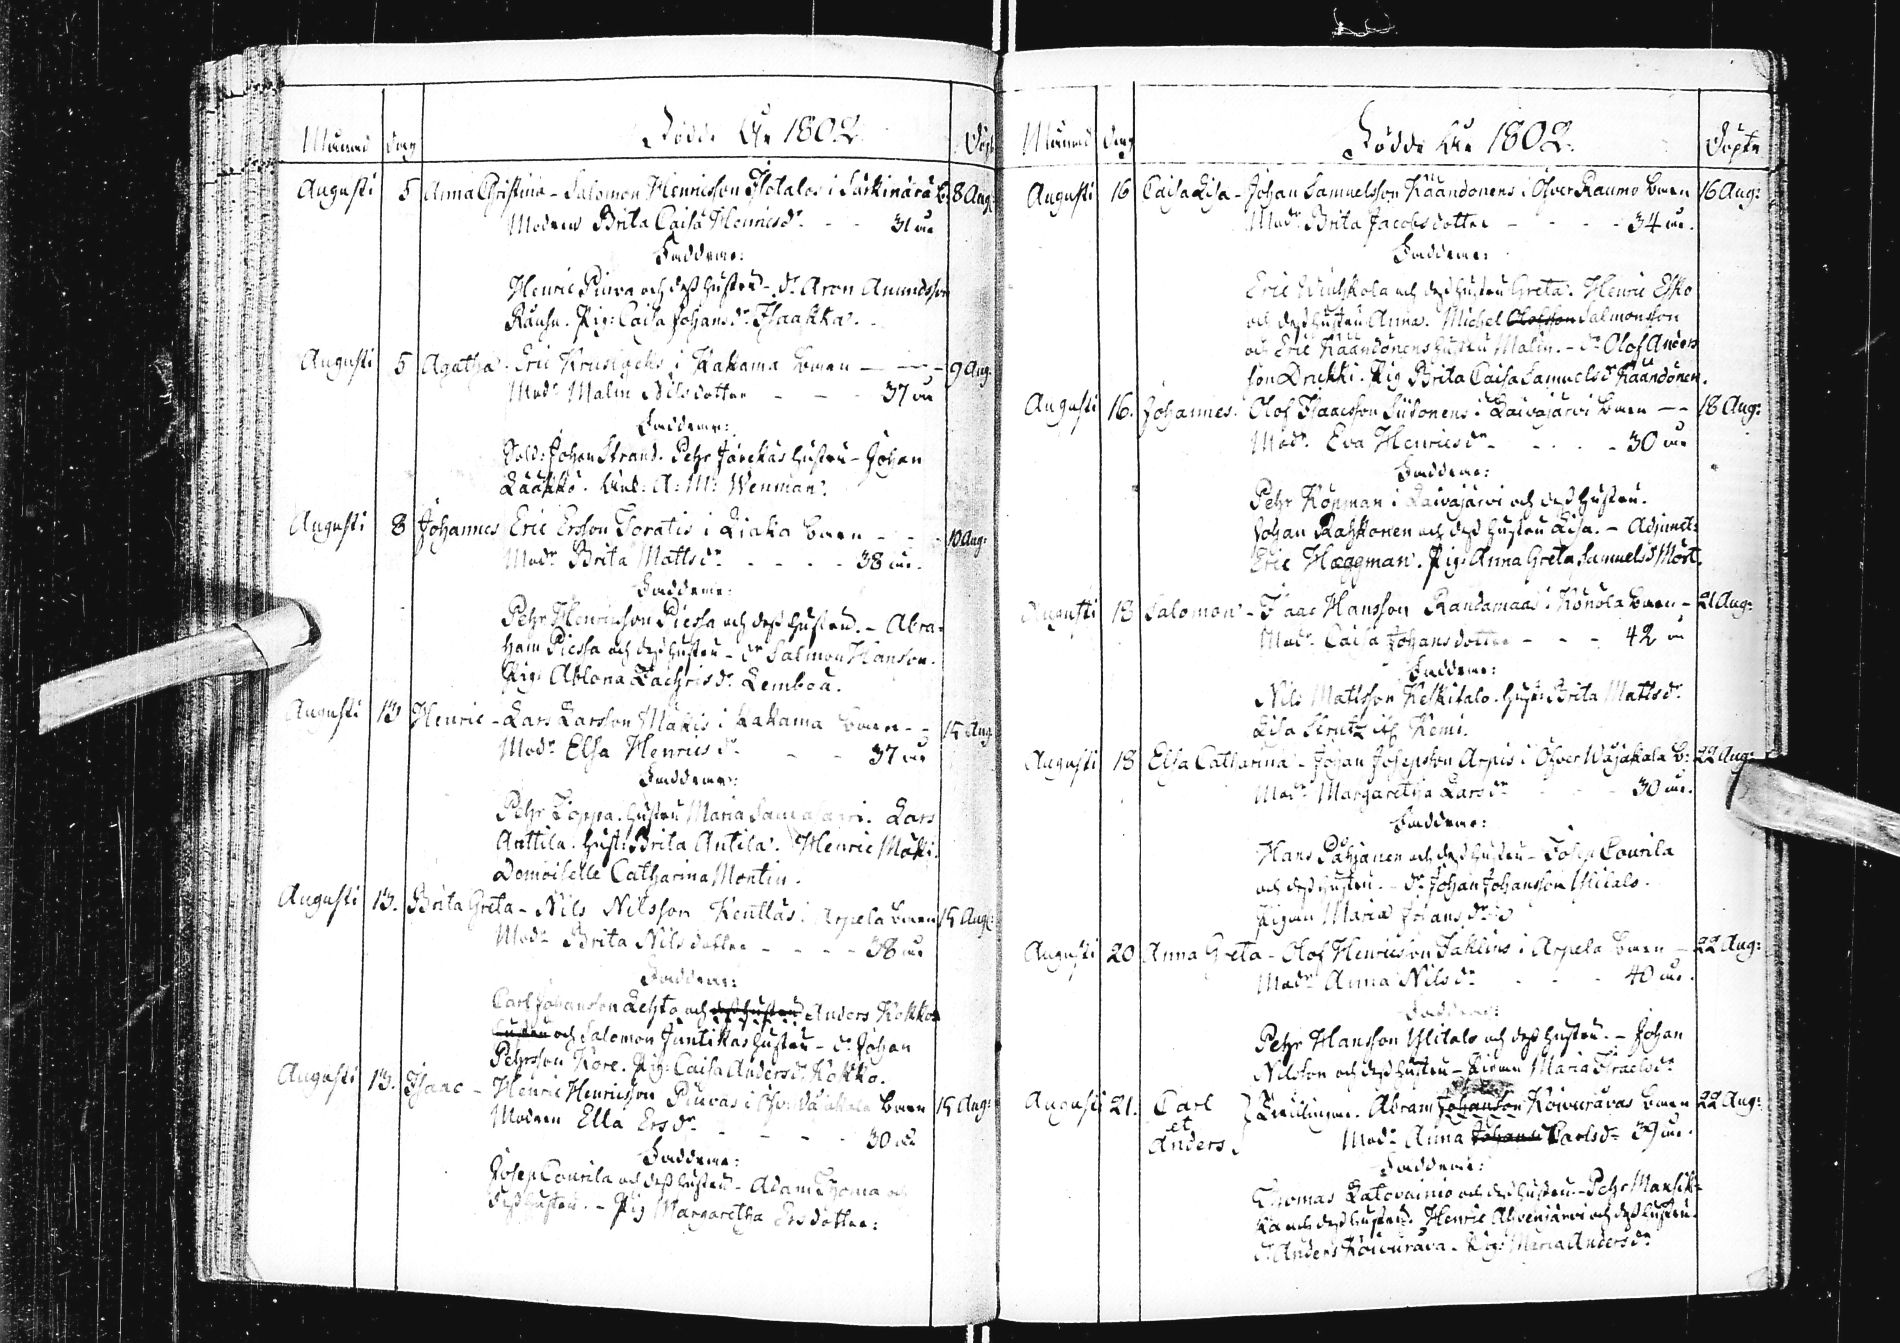 Månad dag Födde År 1802. Döpt
Augusti 5 Anna Christina - Salomon Henricsson Isotalos i Särkinärä b: 8 Aug:
Modren Brita Caisa Henricsdr - - 31 år
Faddrar:
Henric Piuva och dess hustru - dr Aron Amundsson
Rauhu. Pig: Caisa Johansdr Isaakka.
Augusti 5 Agatha. Eric Krusbocks i Kakama barn - - - 9 Aug:
Modr Malin Nilsdotter - - - 37 år
Faddrar:
Sold: Johan Strand. Pehr Jarekas hustru - Johan
Lääkkö. A: M: Wenman.
Augusti 8 Johannes Eric Ersson Toratis i Liaka barn - - 10 Aug:
Modr Brita Mattsdr - - - - 38 år.
Faddrar:
Pehr Henricsson Piessa och dess hustru. - Abra-
ham Piessa och dess hustru - dr Salmon Hanson.
Pig: Ablona Zachrisdr Lembou.
Augusti 13 Henric - Lars Larsson Mäkis i Kakama barn - - 15 Aug:
Modr Elsa Henricsdr - - 37 år
Faddrar:
Pehr Toppa. hustru Maria Lars
Anttila. hust: Brita Antila. Henric Mäki.
Domoiselle Catharina Montin.
Augusti 13. Brita Greta - Nils Nilsson Kenttäs i Arpela barn 15 Aug:
Modr Brita Nilsdotter - - - - 38 år
Faddrar:
Carl Johansson Lehto och dess hustru Anders Kokko
hustru och Salomon Juntikas hustru - dr Johan
Pehrsson Kore. Pig: Caisa Andersdr Kokko.
Augusti 13. Isaac - Henric Henricsson Piuvas i barn 15 Aug:
Modren Ella Ersdr - - - - 30 år
Faddrar:
Josep Courila och dess hustru - Adam Thoma och
dess hustru. - Pig Margaretha Ersdotter:
Månad dag Födde År 1802. Döpte
Augusti 16 Caisa Lisa - Johan Samuelsson Käändönens i Öfver Raumo barn 16 Aug:
Modr Brita Jacobsdotter - - - - 34 år.
Faddrar:
Eric Wiuhkola och dess hustru Greta. Henric Esko
och dess hustru Anna. Michel Olofsson Salmonsson
och Eric Käändönens hustru Malin. - dr Olof Anders
son Drukki. Pig Brita Caisa Samuelsdr Käändönen.
Augusti 16. Johannes. Olof Isaacsson Siitonens i Laivajärvi barn - - 18 Aug:
Modr Eva Henricsdr - - - - - 30 år
Faddrar:
Pehr Köpman i Laivajärvi och dess hustru.
Johan Rahkonen och dess hustru Lisa. - Adjunct:
Eric Hæggman. Pig: Anna Greta Samuelsd Mört.
Augusti 18 Salomon - Isaac Hansson Randamaas i Könölä barn - 21 Aug:
Modr Caisa Johansdotter - - - 42 år
Faddrar:
Nils Mattsson Keskitalo. hust: Brita Mattsdr
Lisa Strutz if Kemi.
Augusti 18 Elsa Catharina - Johan Josepsson Arpis i Öfver Wäjakala b: 22 Aug:
Modr Margaretha Larsdr - - - 30 år.
Faddrar:
Hans Pahjanen och dess hustru - Josep Courila
och dess hustru. - dr Johan Johansson Ylitalo.
Pigan Maria Johansdr
Augusti 20 Anna Greta - Olof Henricsson Jaklins i Arpela barn - 22 Aug:
Modr Anna Nilsdr - - - 40 år.
Faddrar:
Pehr Hansson Ylitalo och dess hustru. - Johan
Nilsson och dess hustru - Pigan Maria Israelsdr
Augusti 21. Carl et Anders } Tvillingar. Abram Johansson Koivuravas barn 22 Aug:
Modr Anna Johans Carlsdr 39 år.
Faddrar:
Thomas Latovainio och dess hustru. - Pehr Mansik-
ka och dess hustru. Henric Ahvenjärvi och dess hustru.
d: Anders Koivurava. Pig: Maria Andersdr